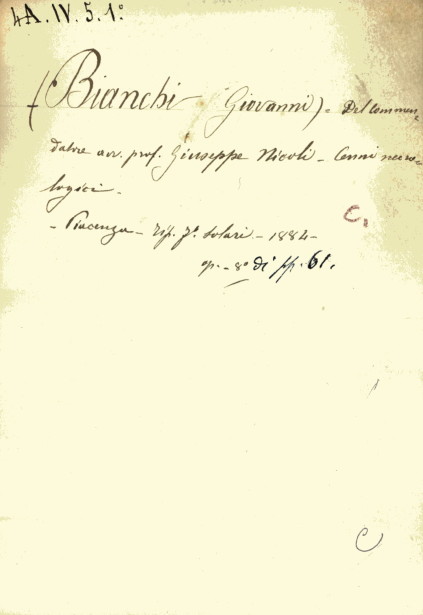 4A.IV.5.1º
(Bianchi Giovanni) = Del commen-
datore avv. prof. Giuseppe Nicoli - Cenni necro-
logici -
- Piacenza - Tip. F. Solari - 1884 -
C.
op. - 8º di pp. 61.
C